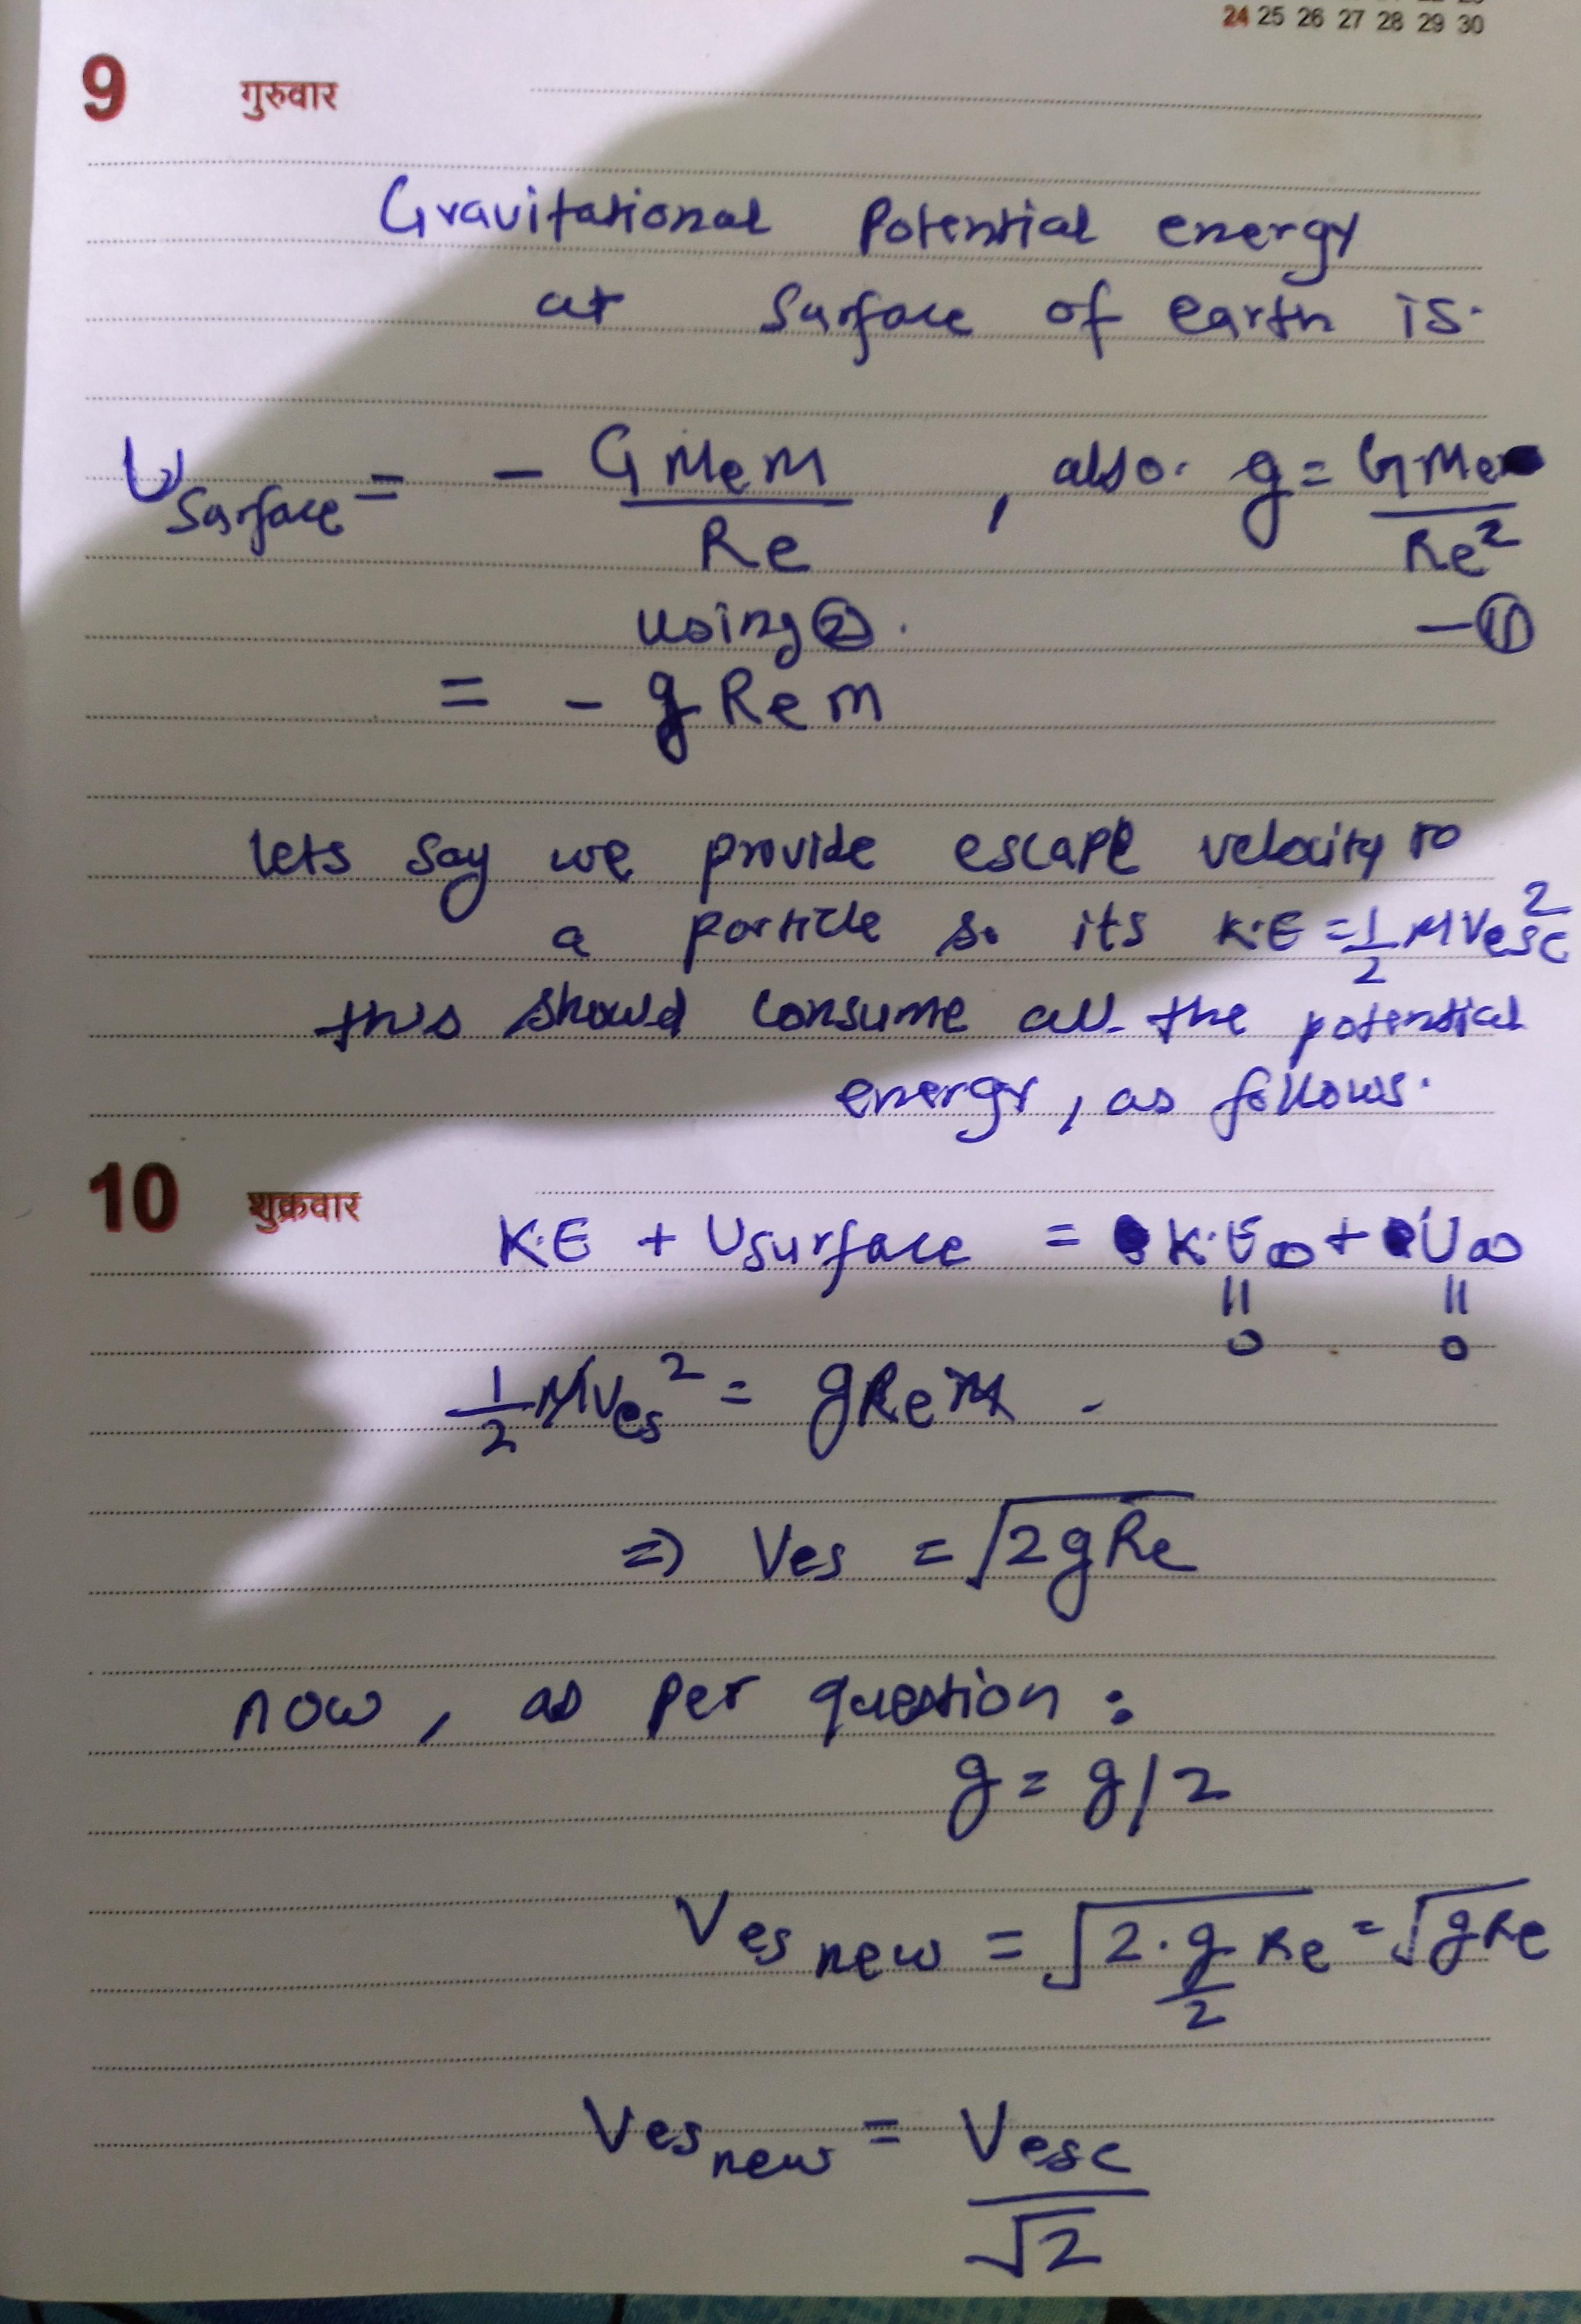 24 25 26 27 28 29 30
9 गुरुवार
Gravitational Potential energy
at Surface of earth is.
U Surface = - GMeM / Re , also. g = GMe / Re²
using ② . - ⑪
= - g Re m
lets say we provide escape velocity to
a particle so its K.E = 1/2 MVesc²
this should consume all the potential
energy, as follows.
10 शुक्रवार
K.E + Usurface = K.E∞ + U∞
|| ||
0 0
1/2 MVes² = gRem .
=> Ves = √2gRe
now, as per question :
g = g/2
Ves new = √2.g/2 Re = √gRe
Ves new = Vesc / √2